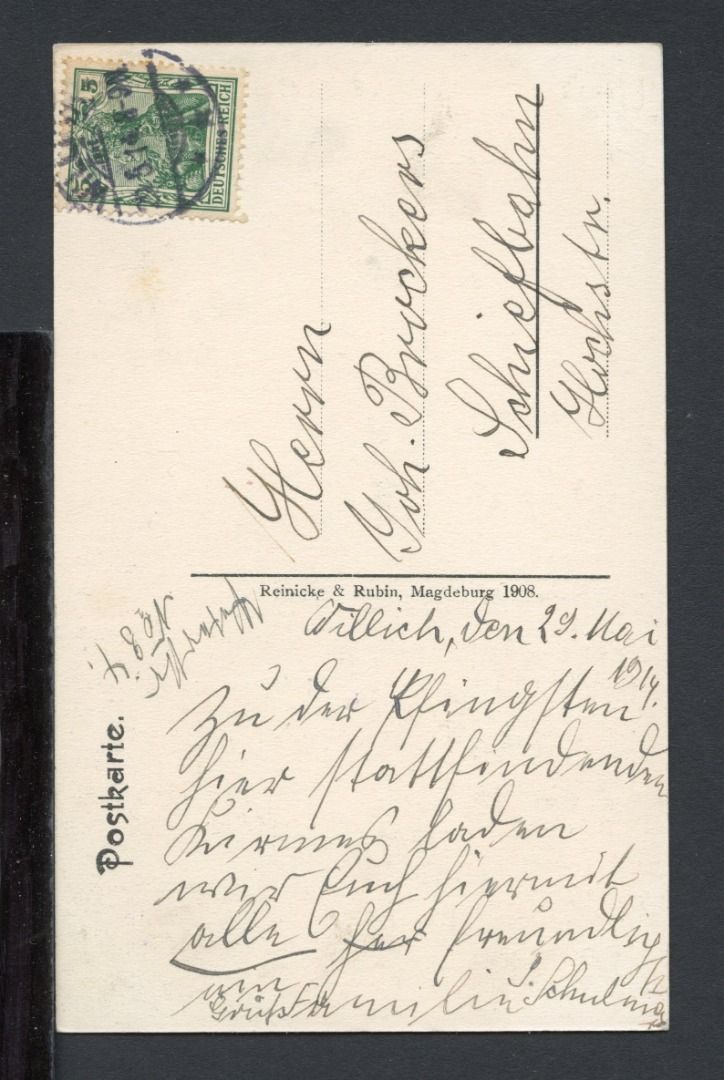 5
DEUTSCHES REICH
Herrn
Joh. Brockers
Schiefbahn
Hochstr.
Reinicke & Rubin, Magdeburg 1908.
Postkarte.
Willich, den 29. Mai
1914.
Zu der Pfingsten
hier stattfindenden
Kirmes laden
wir Euch hiermit
alle freundligst
ein
Gruß Familie